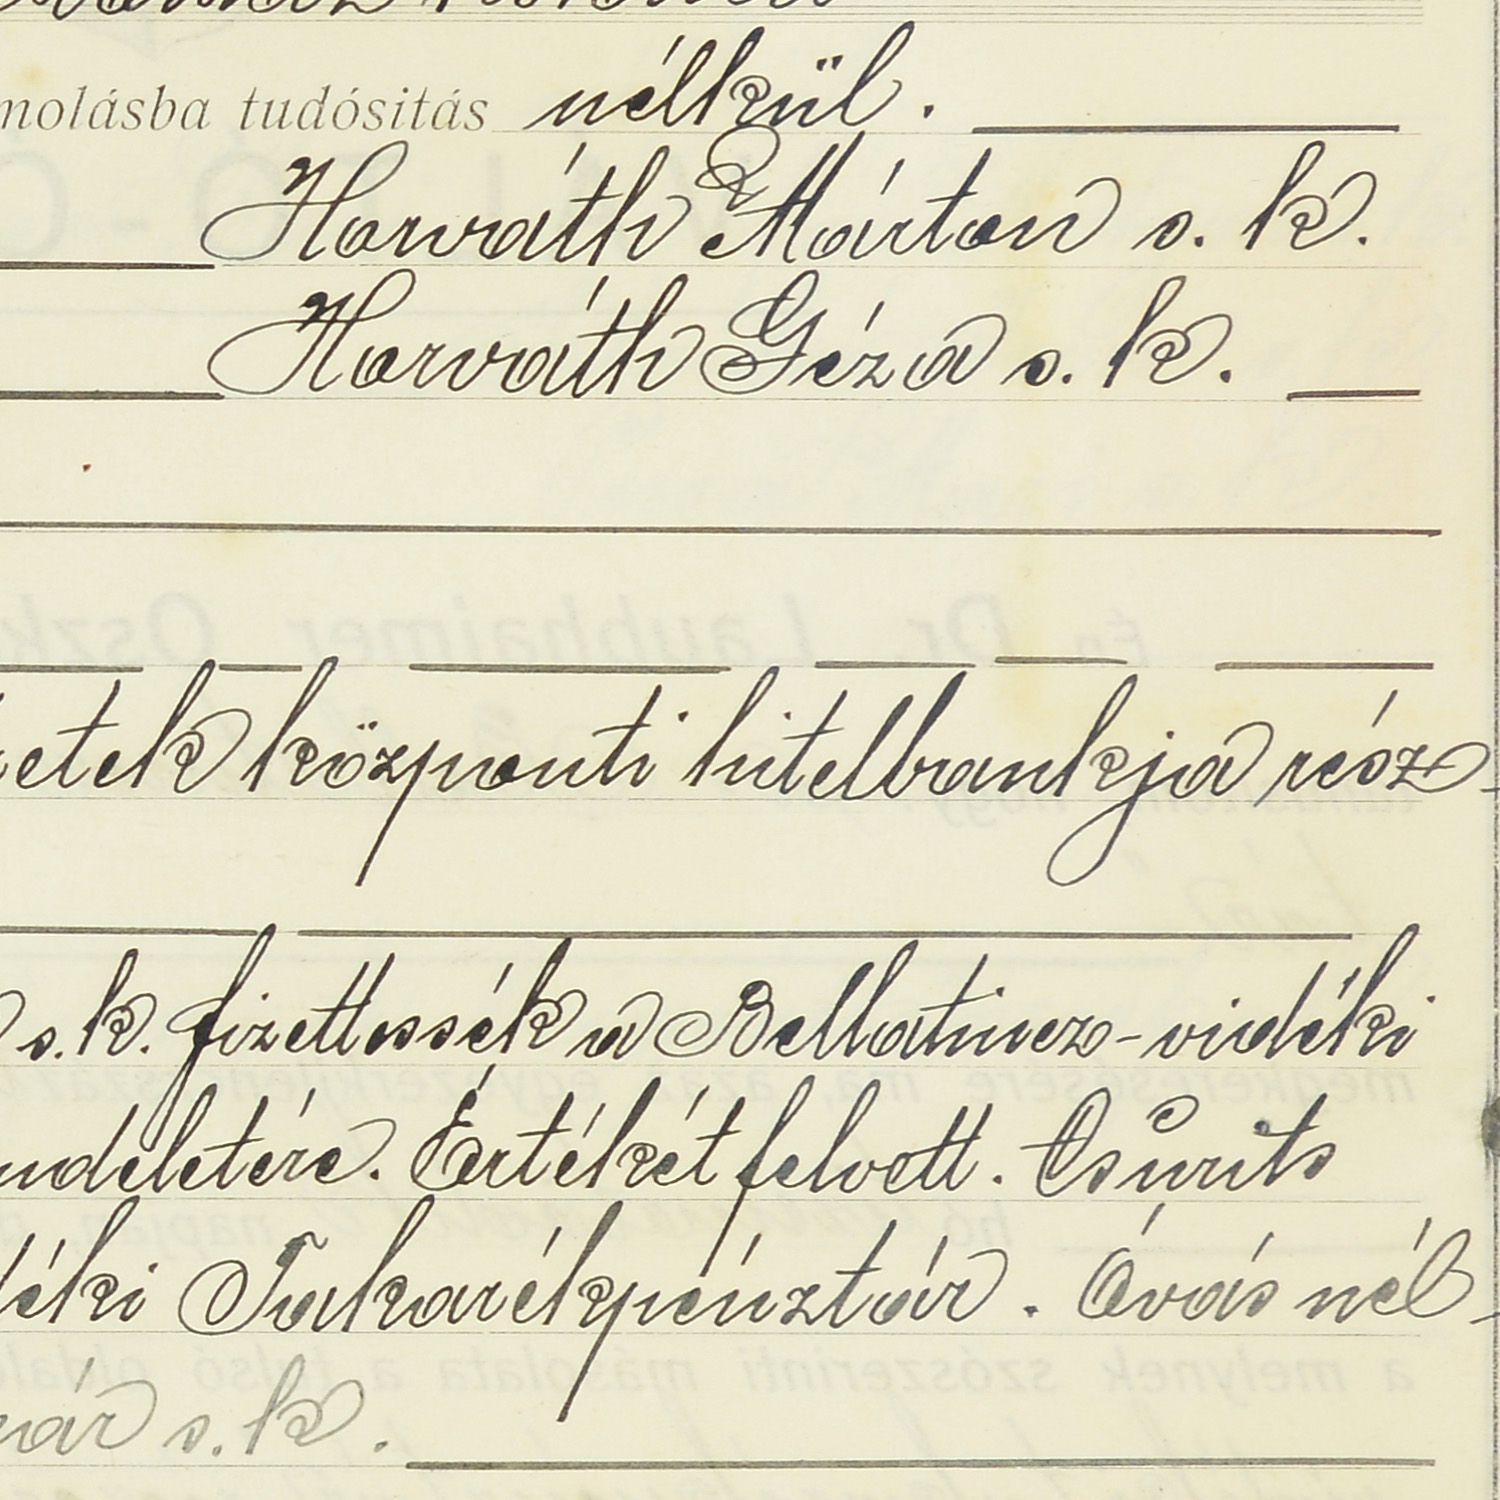 molásba tudósitás nélkül.
Horváth Márton s. k.
Horváth Géza s. k.
etek központi hitelbankja rész-
s. k. fizettessék a Bellatincz-vidéki
ndeletére. Értékét felvett. Csurits
déki Takarékpénztár. Óvás nél-
ár s. k.